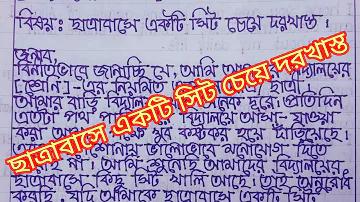 বিষয়ঃ ছাত্রাবাসে একটি সিট চেয়ে দরখাস্ত ।
জনাব,
বিনীতভাবে জানাচ্ছি যে, আমি আপনার বিদ্যালয়ের
[শ্রেণি]-এর নিয়মিত ছাত্রী
আমার বাড়ি বিদ্যালয় অনেক দূরে। প্রতিদিন
এতটা পথ বিদ্যালয়ে আসা-যাওয়া
করা আমার খুব কষ্টকর হয়ে দাঁড়িয়েছে।
ভালোভাবে মনোযোগ দিতে
না। আমি শুনেছি আমাদের বিদ্যালয়ের
ছাত্রাবাসে কিছু সিট খালি আছে। তাই অনুরোধ
করছি, যদি আমাকে ছাত্রাবাসে একটি সিট
ছাত্রাবাসে একটি সিট চেয়ে দরখাস্ত